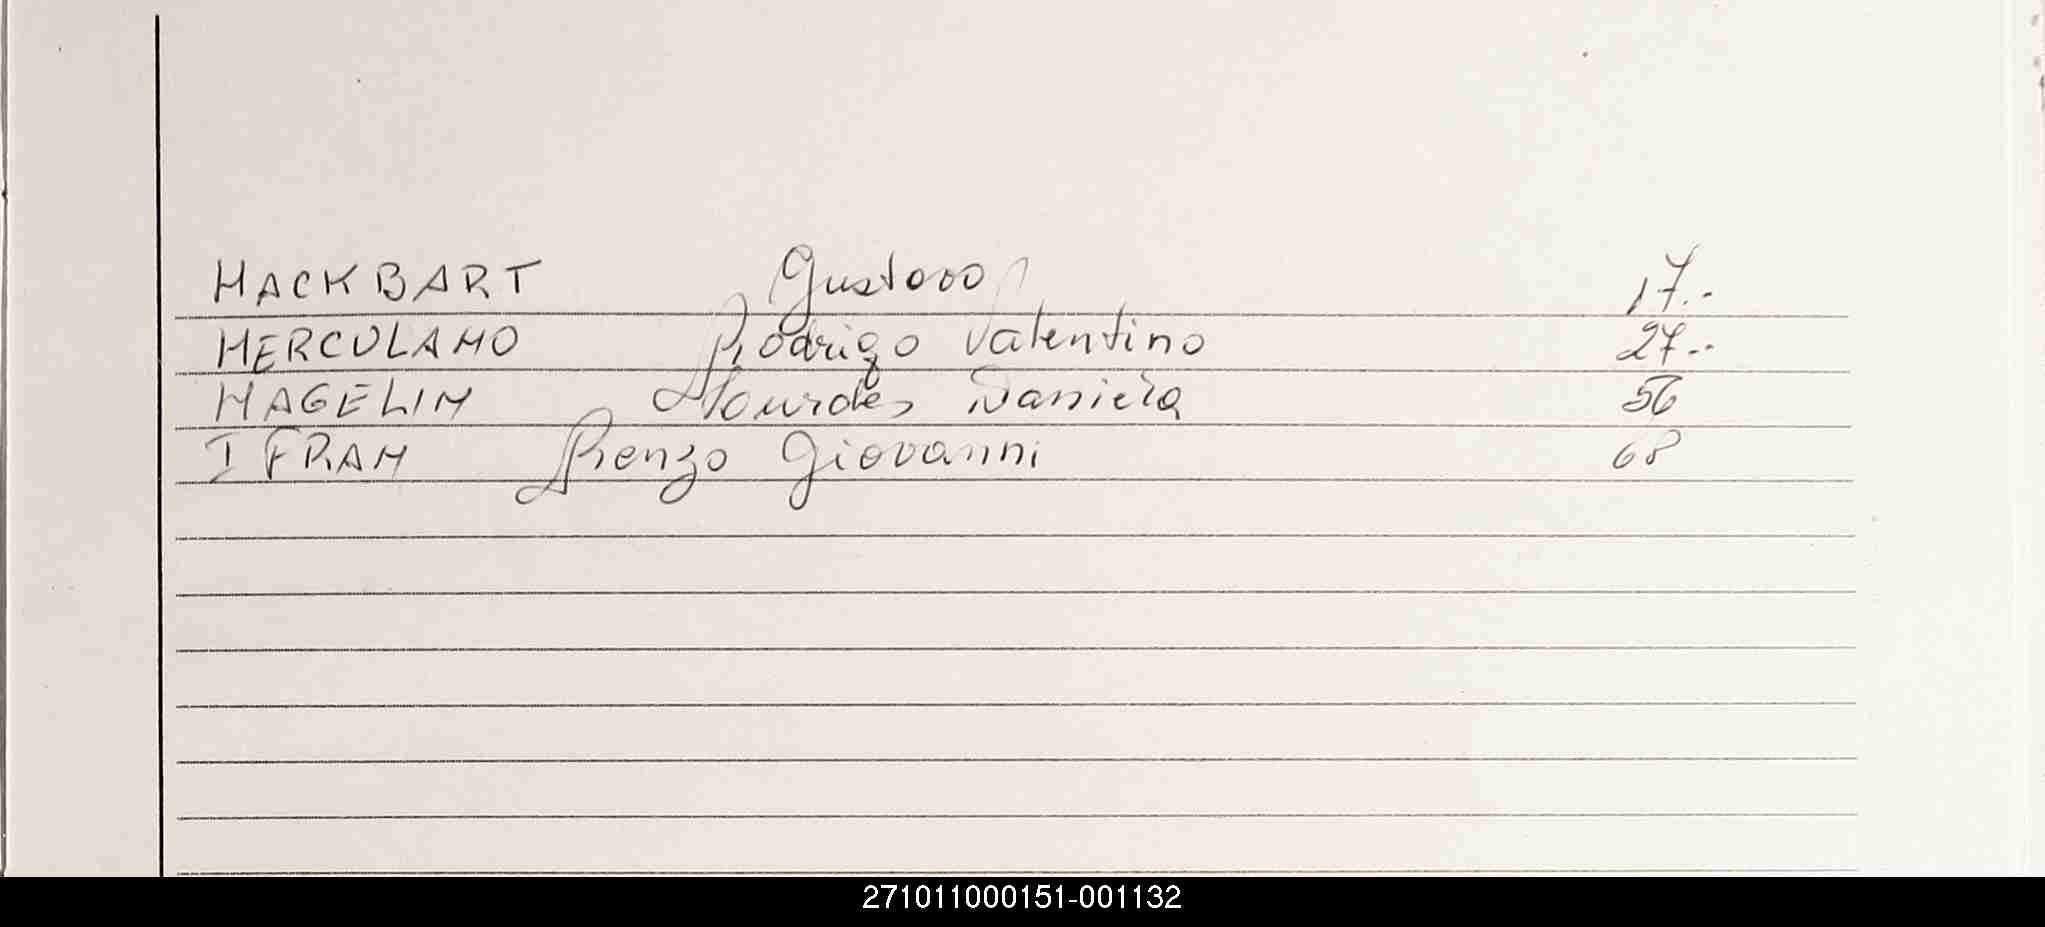 HACKBART Gustavo 17..
HERCULANO Rodrigo Valentino 27..
HAGELIN Lourdes Daniela 56
IFRAN Renzo Giovanni 68
271011000151-001132